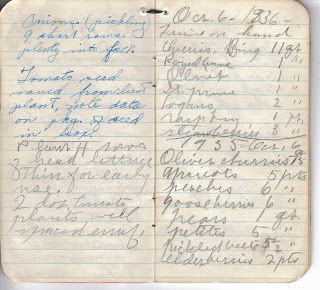 Onions (pickling)
9 short rows
plenty into fall
Tomato seed
saved from best
plant, note date
on pkg. of seed
in box.
Plant 4 rows
2 head lettuce
thin for early
use.
2 doz tomato
plants well
spaced
Oct. 6 - 1936 -
Fruit on hand
Cherries, Bing 11 qt
Royal Anne 1 "
Olivet 1 "
St. prune 1 "
Logans 2 "
raspberry 1 pt.
strawberries 3 "
1935 - Oct. 6
Olivet cherries 15 qt
apricots 5 pts
peaches 6 "
gooseberries 6 "
pears 1 qt.
petites 5 "
pickled beets 5½ "
elderberries 2 pts